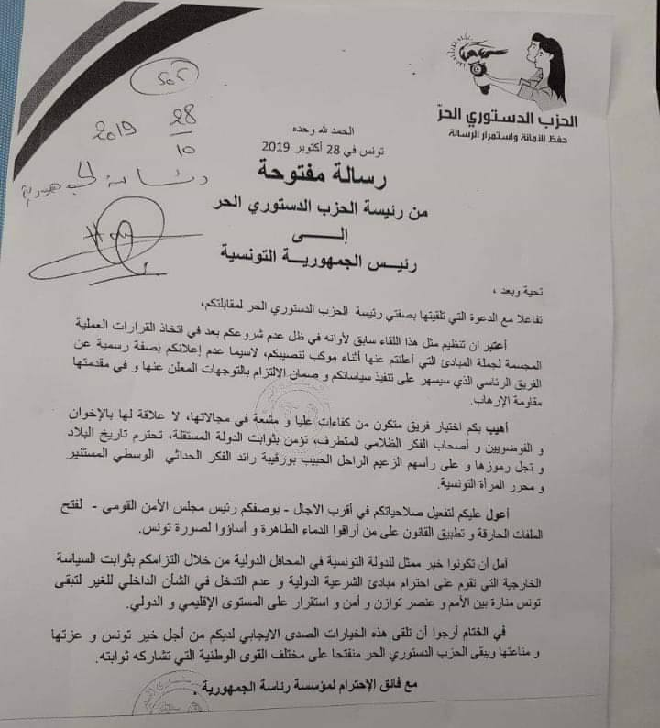 الحزب الدستوري الحرّ
حفظ الأمانة واستمرار الرسالة
28
10
2019
الحمد لله وحده
تونس في 28 أكتوبر 2019
رسالة مفتوحة
من رئيسة الحزب الدستوري الحر
إلـــــى
رئيـس الجمهوريـة التونسية
تحية وبعد ،
تفاعلا مع الدعوة التي تلقيتها بصفتي رئيسة الحزب الدستوري الحر لمقابلتكم،
أعتبر ان تنظيم مثل هذا اللقاء سابق لأوانه في ظل عدم شروعكم بعد في اتخاذ القرارات العملية
المجسمة لجملة المبادئ التي أعلنتم عنها أثناء موكب تنصيبكم، لاسيما عدم إعلانكم بصفة رسمية عن
الفريق الرئاسي الذي سيسهر على تنفيذ سياساتكم و ضمان الالتزام بالتوجهات المعلن عنها و في مقدمتها
مقاومة الإرهاب.
أهيب بكم اختيار فريق متكون من كفاءات عليا و مشعة في مجالاتها، لا علاقة لها بالإخوان
و الفوضويين و أصحاب الفكر الظلامي المتطرف، تؤمن بثوابت الدولة المستقلة، تحترم تاريخ البلاد
و تجل رموزها و على رأسهم الزعيم الراحل الحبيب بورقيبة رائد الفكر الحداثي الوسطي المستنير
و محرر المرأة التونسية.
أعول عليكم لتفعيل صلاحياتكم في أقرب الآجال - بوصفكم رئيس مجلس الأمن القومي - لفتح
الملفات الحارقة و تطبيق القانون على من أراقوا الدماء الطاهرة و أساؤوا لصورة تونس.
آمل أن تكونوا خير ممثل للدولة التونسية في المحافل الدولية من خلال التزامكم بثوابت السياسة
الخارجية التي تقوم على احترام مبادئ الشرعية الدولية و عدم التدخل في الشأن الداخلي للغير لتبقى
تونس منارة بين الأمم و عنصر توازن و أمن و استقرار على المستوى الإقليمي و الدولي.
في الختام أرجوا أن تلقى هذه الخيارات الصدى الايجابي لديكم من أجل خير تونس و عزتها
و مناعتها ويبقى الحزب الدستوري الحر منفتحا على مختلف القوى الوطنية التي تشاركه ثوابته.
مع فائق الإحترام لمؤسسة رئاسة الجمهورية .